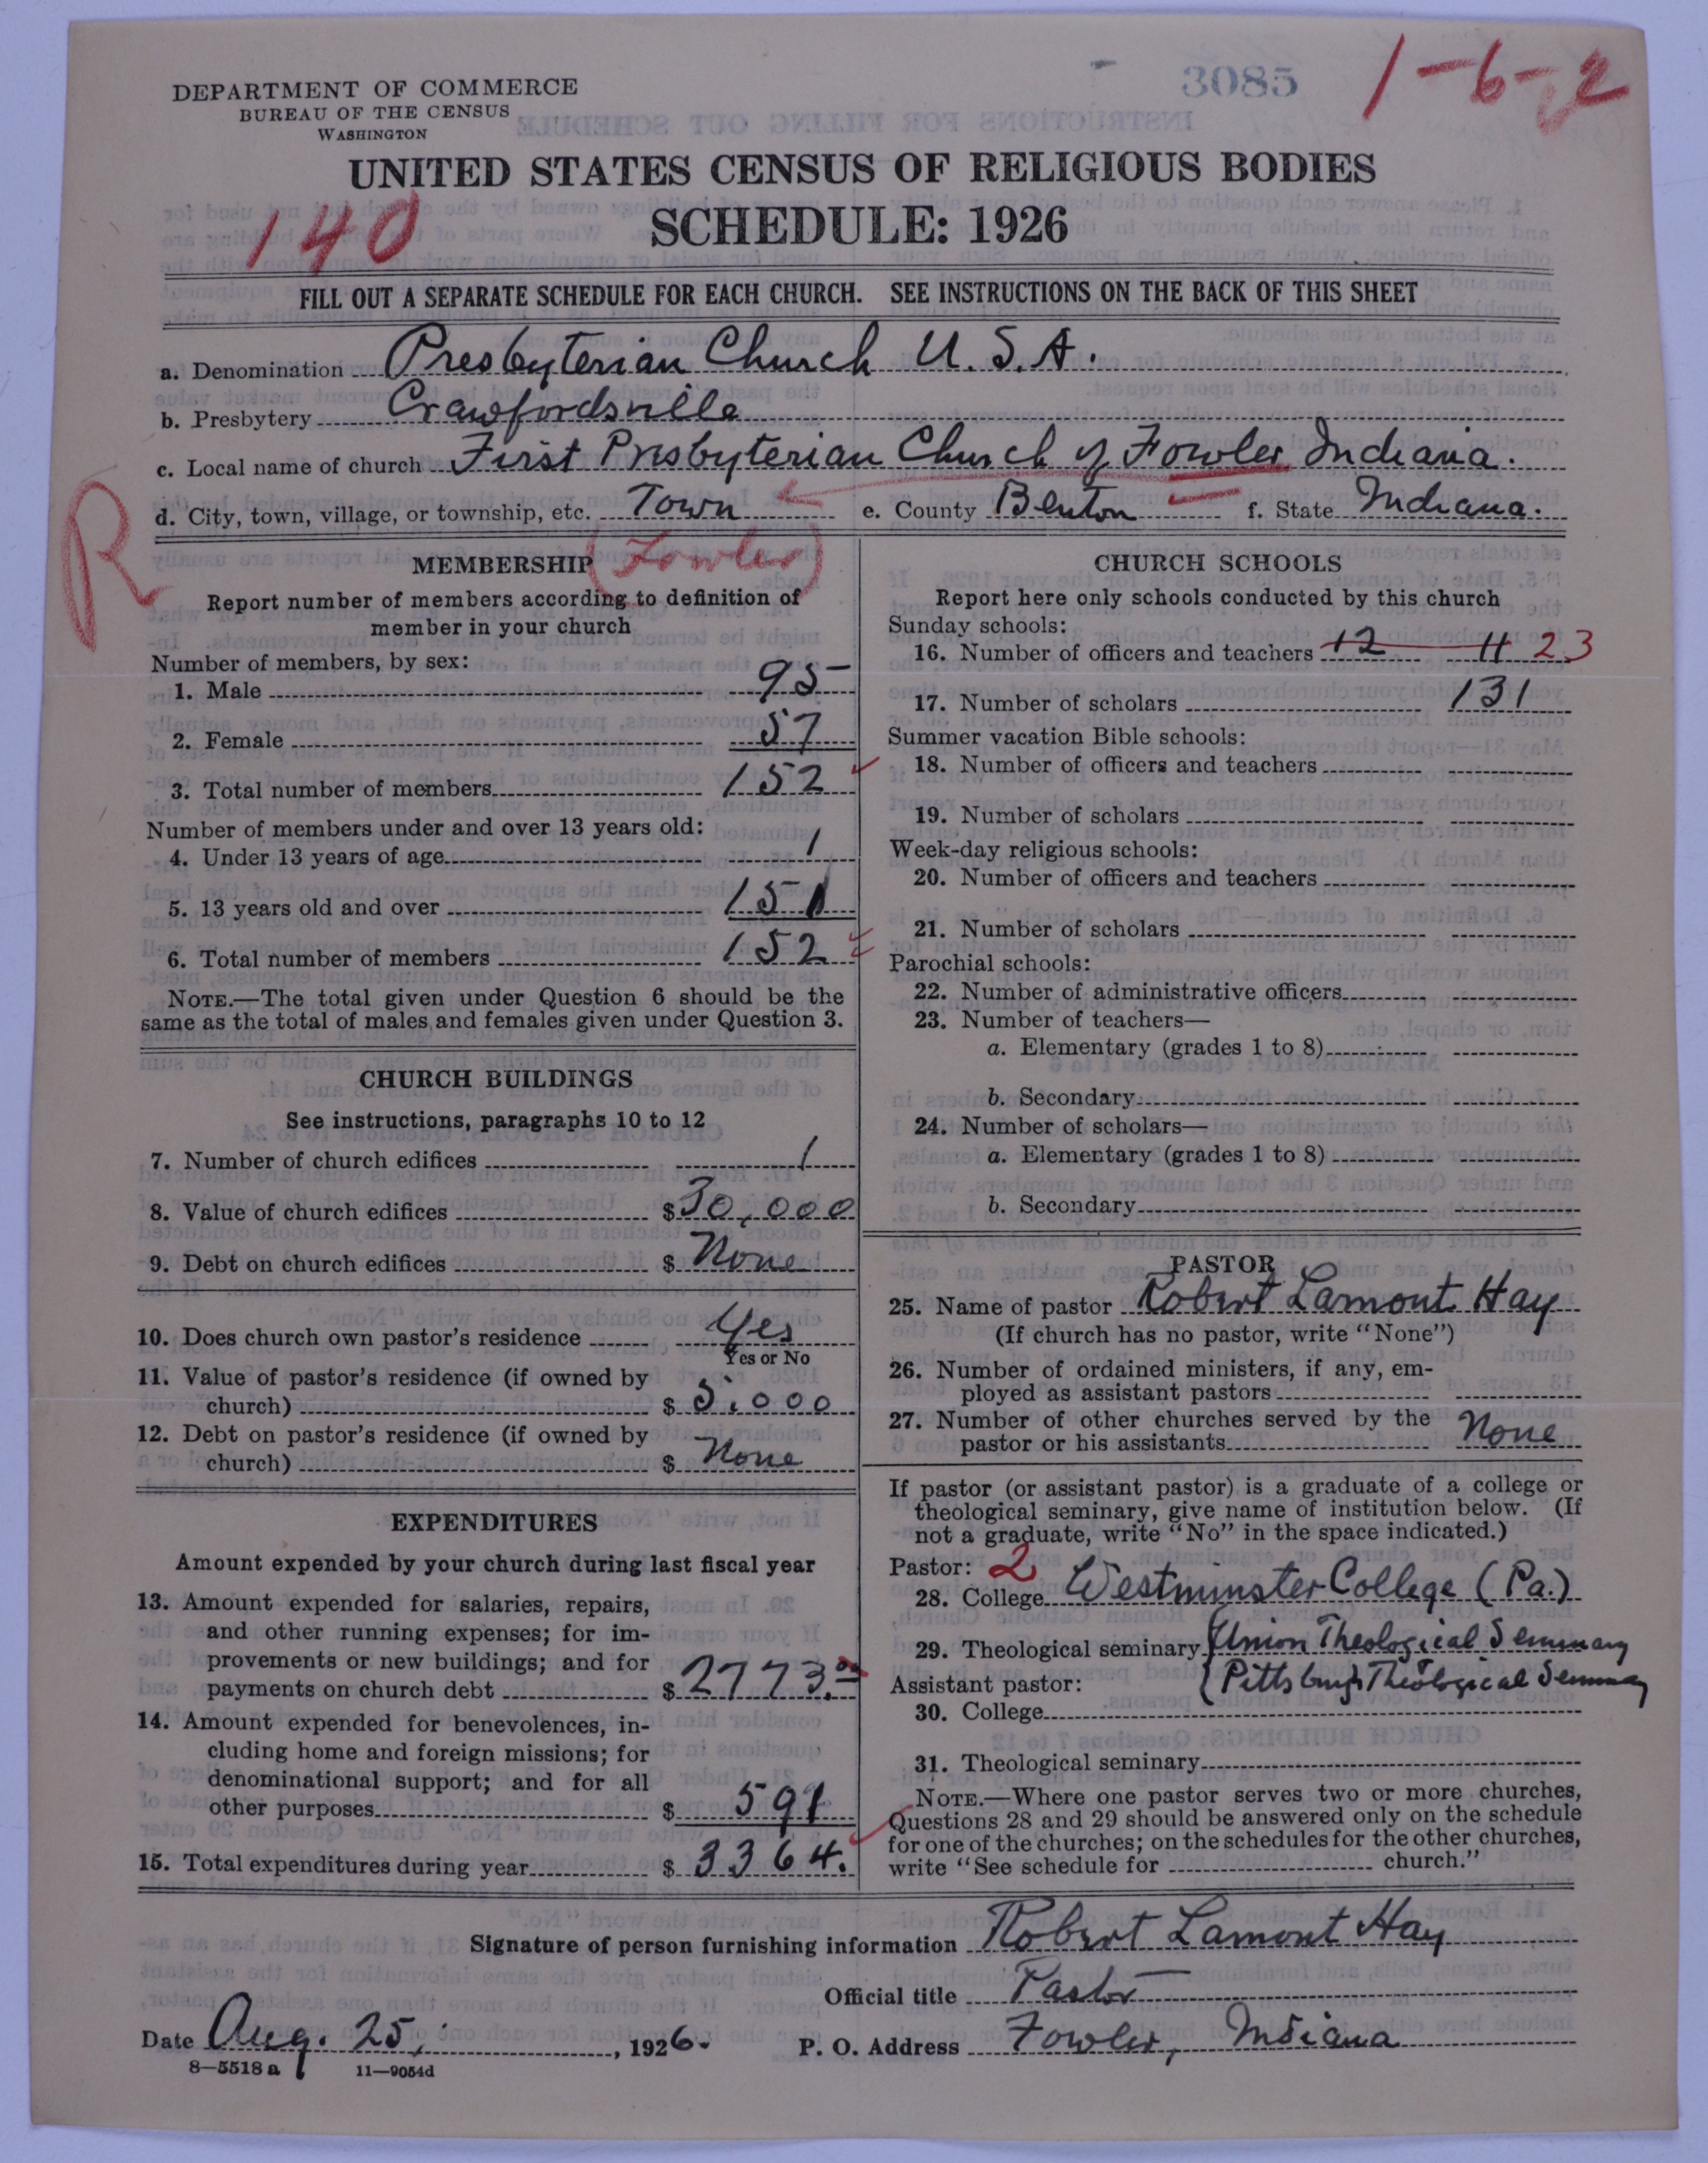 3085
1-6-2
DEPARTMENT OF COMMERCE
BUREAU OF THE CENSUS
WASHINGTON
UNITED STATES CENSUS OF RELIGIOUS BODIES
140
SCHEDULE: 1926
FILL OUT A SEPARATE SCHEDULE FOR EACH CHURCH. SEE INSTRUCTIONS ON THE BACK OF THIS SHEET
a. Denomination Presbyterian Church U.S.A.
b. Presbytery Crawfordsville
c. Local name of church First Presbyterian Church of Fowler Indiana.
d. City, town, village, or township, etc. Town e. County Benton f. State Indiana.
R
(Fowler)
MEMBERSHIP
Report number of members according to definition of
member in your church
Number of members, by sex:
1. Male 95
2. Female 57
3. Total number of members 152
Number of members under and over 13 years old:
4. Under 13 years of age 1
5. 13 years old and over 151
6. Total number of members 152
NOTE.—The total given under Question 6 should be the
same as the total of males and females given under Question 3.
CHURCH BUILDINGS
See instructions, paragraphs 10 to 12
7. Number of church edifices 1
8. Value of church edifices $30,000
9. Debt on church edifices $ None
10. Does church own pastor's residence Yes
Yes or No
11. Value of pastor's residence (if owned by
church) $ 5,000
12. Debt on pastor's residence (if owned by
church) $ None
EXPENDITURES
Amount expended by your church during last fiscal year
13. Amount expended for salaries, repairs,
and other running expenses; for im-
provements or new buildings; and for
payments on church debt $ 2773.00
14. Amount expended for benevolences, in-
cluding home and foreign missions; for
denominational support; and for all
other purposes $ 591
15. Total expenditures during year $ 3364.
CHURCH SCHOOLS
Report here only schools conducted by this church
Sunday schools:
16. Number of officers and teachers 12 11 23
17. Number of scholars 131
Summer vacation Bible schools:
18. Number of officers and teachers
19. Number of scholars
Week-day religious schools:
20. Number of officers and teachers
21. Number of scholars
Parochial schools:
22. Number of administrative officers
23. Number of teachers—
a. Elementary (grades 1 to 8)
b. Secondary
24. Number of scholars—
a. Elementary (grades 1 to 8)
b. Secondary
PASTOR
25. Name of pastor Robert Lamont Hay
(If church has no pastor, write "None")
26. Number of ordained ministers, if any, em-
ployed as assistant pastors
27. Number of other churches served by the
pastor or his assistants None
If pastor (or assistant pastor) is a graduate of a college or
theological seminary, give name of institution below. (If
not a graduate, write "No" in the space indicated.)
Pastor: 2
28. College Westminster College (Pa.)
29. Theological seminary (Union Theological Seminary
Assistant pastor: (Pittsburgh Theological Seminary
30. College
31. Theological seminary
NOTE.—Where one pastor serves two or more churches,
Questions 28 and 29 should be answered only on the schedule
for one of the churches; on the schedules for the other churches,
write "See schedule for church."
Signature of person furnishing information Robert Lamont Hay
Official title Pastor
Date Aug. 25, , 1926. P. O. Address Fowler, Indiana
8—5518 a 11—9054d